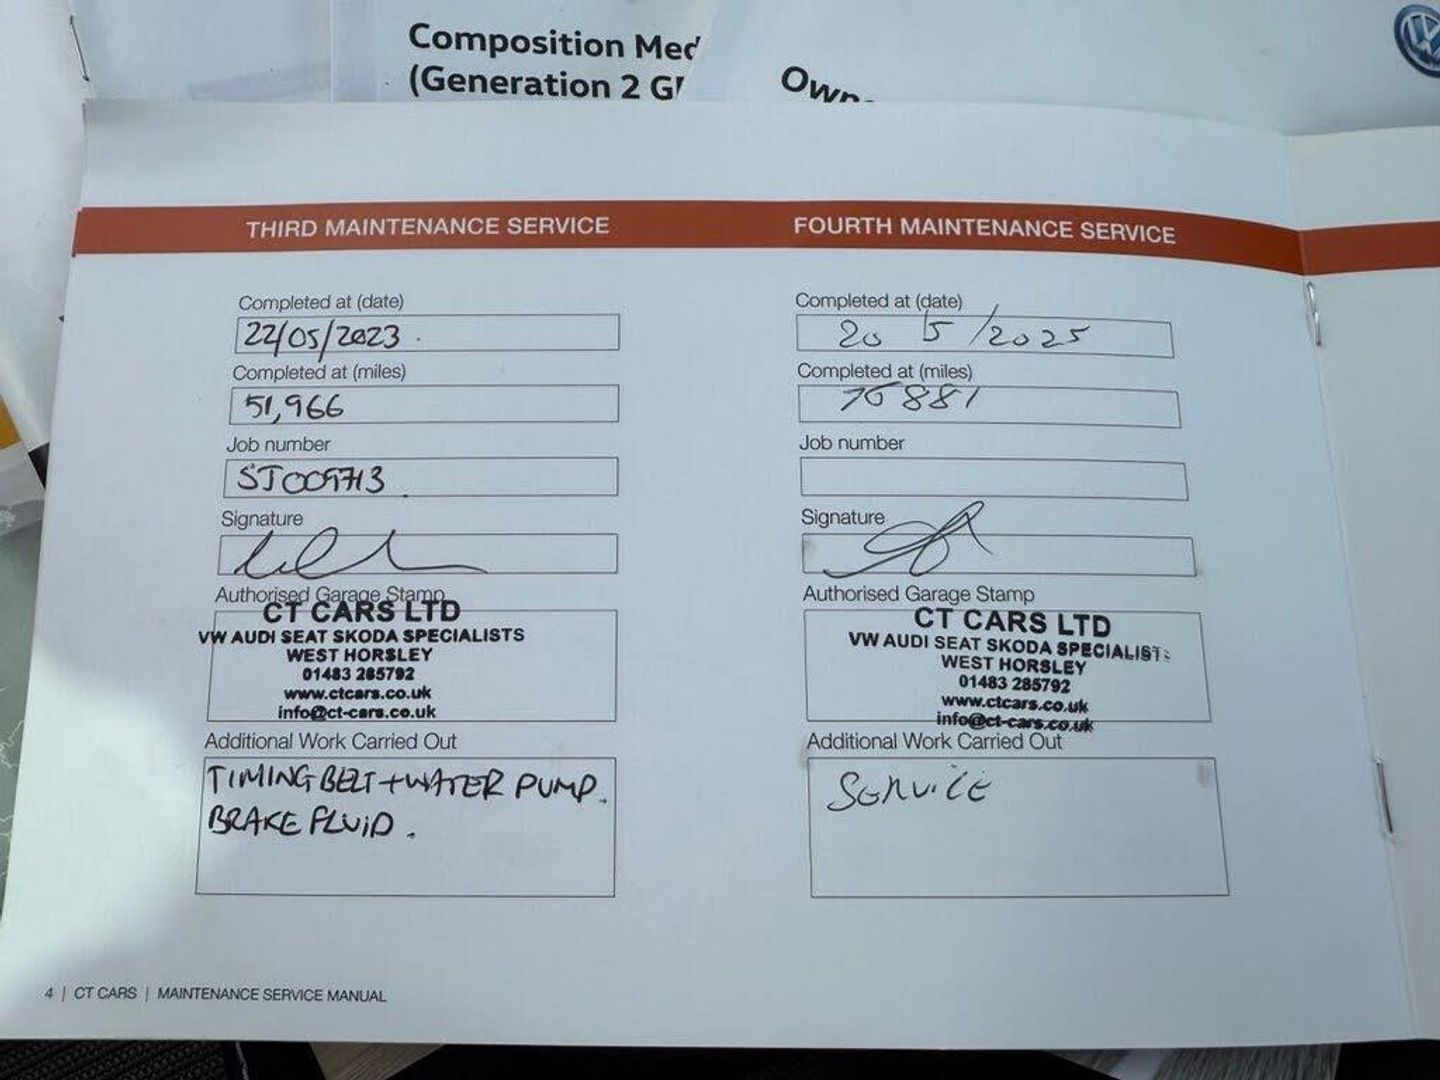 Composition Med
(Generation 2 G
Own
THIRD MAINTENANCE SERVICE
Completed at (date)
22/05/2023.
Completed at (miles)
51,966
Job number
Signature
Authorised Garage Stamp
CT CARS LTD
VW AUDI SEAT SKODA SPECIALISTS
WEST HORSLEY
01483 285792
www.ctcars.co.uk
info@ct-cars.co.uk
Additional Work Carried Out
TIMING BELT + WATER PUMP.
BRAKE FLUID.
FOURTH MAINTENANCE SERVICE
Completed at (date)
20/5/2025
Completed at (miles)
Job number
Signature
Authorised Garage Stamp
CT CARS LTD
VW AUDI SEAT SKODA SPECIALIST
WEST HORSLEY
01483 285792
www.ctcars.co.uk
info@ct-cars.co.uk
Additional Work Carried Out
SERVICE
4 | CT CARS | MAINTENANCE SERVICE MANUAL